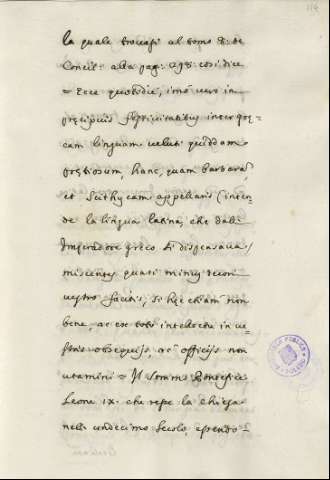 114
la quale trovasi al tomo 8: de
Concil: alla pag: 298: così dice
= Ecce quotidie, imò vero in
pręcipuis festivitatibus inter grę
cam linguam veluti quiddam
pretiosum, hanc, quam barbarā,
et Scythycam appellatis (inten-
de la lingua latina, che dall'
Imperadore greco si disprezava)
miscentes quasi minus decori
vestro facitis, si hęc etiam non
bene, ac ex toto intellecta in ve-
stris obsequijs, ac officijs non
utamini = Il Sommo Pontefice
Leone IX. che resse la Chiesa
nell' undecimo Secolo, essendo-